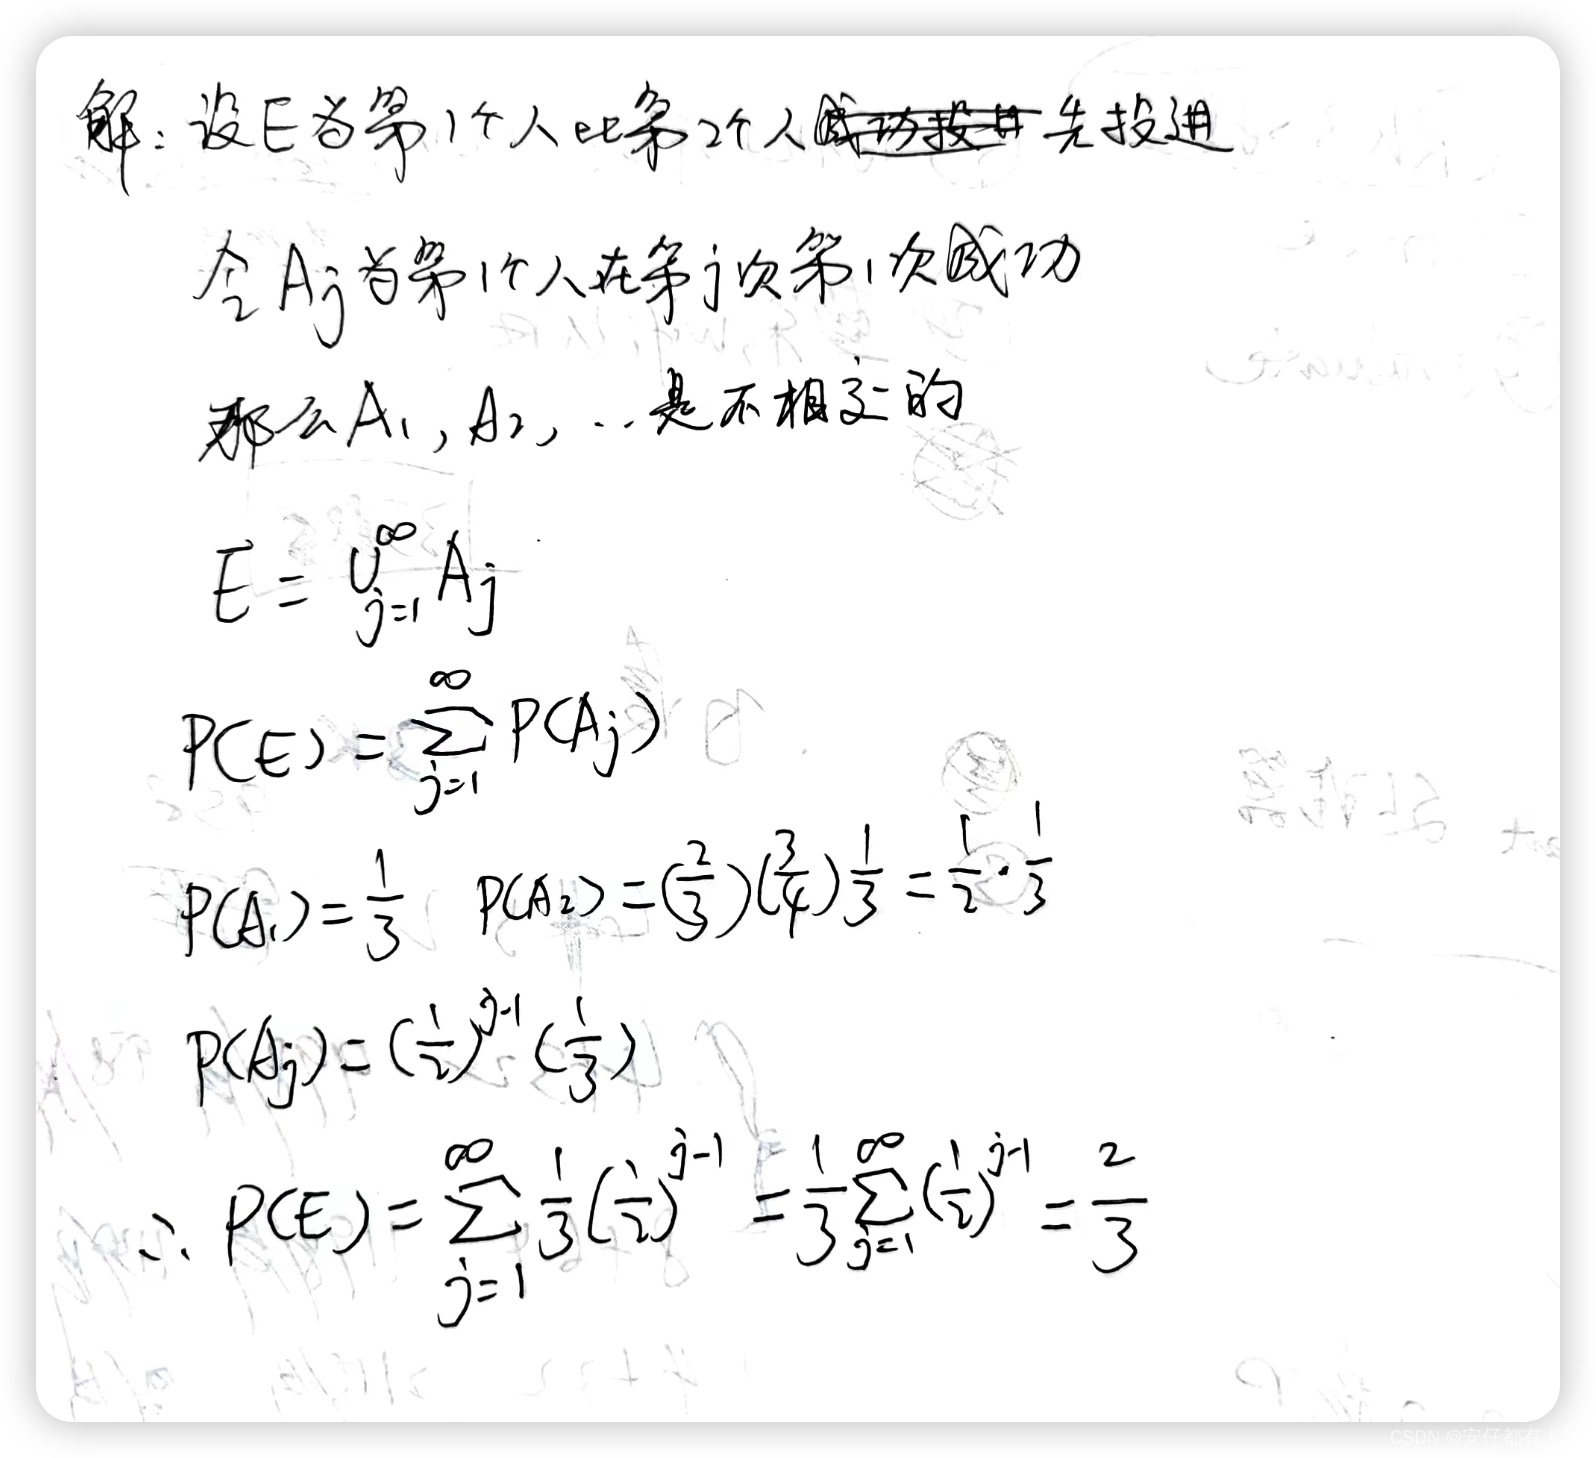 解：设E为第1个人比第2个人成功投进先投进
令Aj为第1个人在第j次第1次成功
那么A₁, A₂, ... 是不相交的
E = ∪_{j=1}^{∞} Aj
P(E) = ∑_{j=1}^{∞} P(Aj)
P(A₁) = 1/3 P(A₂) = (2/3)(3/4)1/3 = 1/2 · 1/3
P(Aj) = (1/2)^{j-1} (1/3)
∴ P(E) = ∑_{j=1}^{∞} 1/3 (1/2)^{j-1} = 1/3 ∑_{j=1}^{∞} (1/2)^{j-1} = 2/3
CSDN @安仔都有